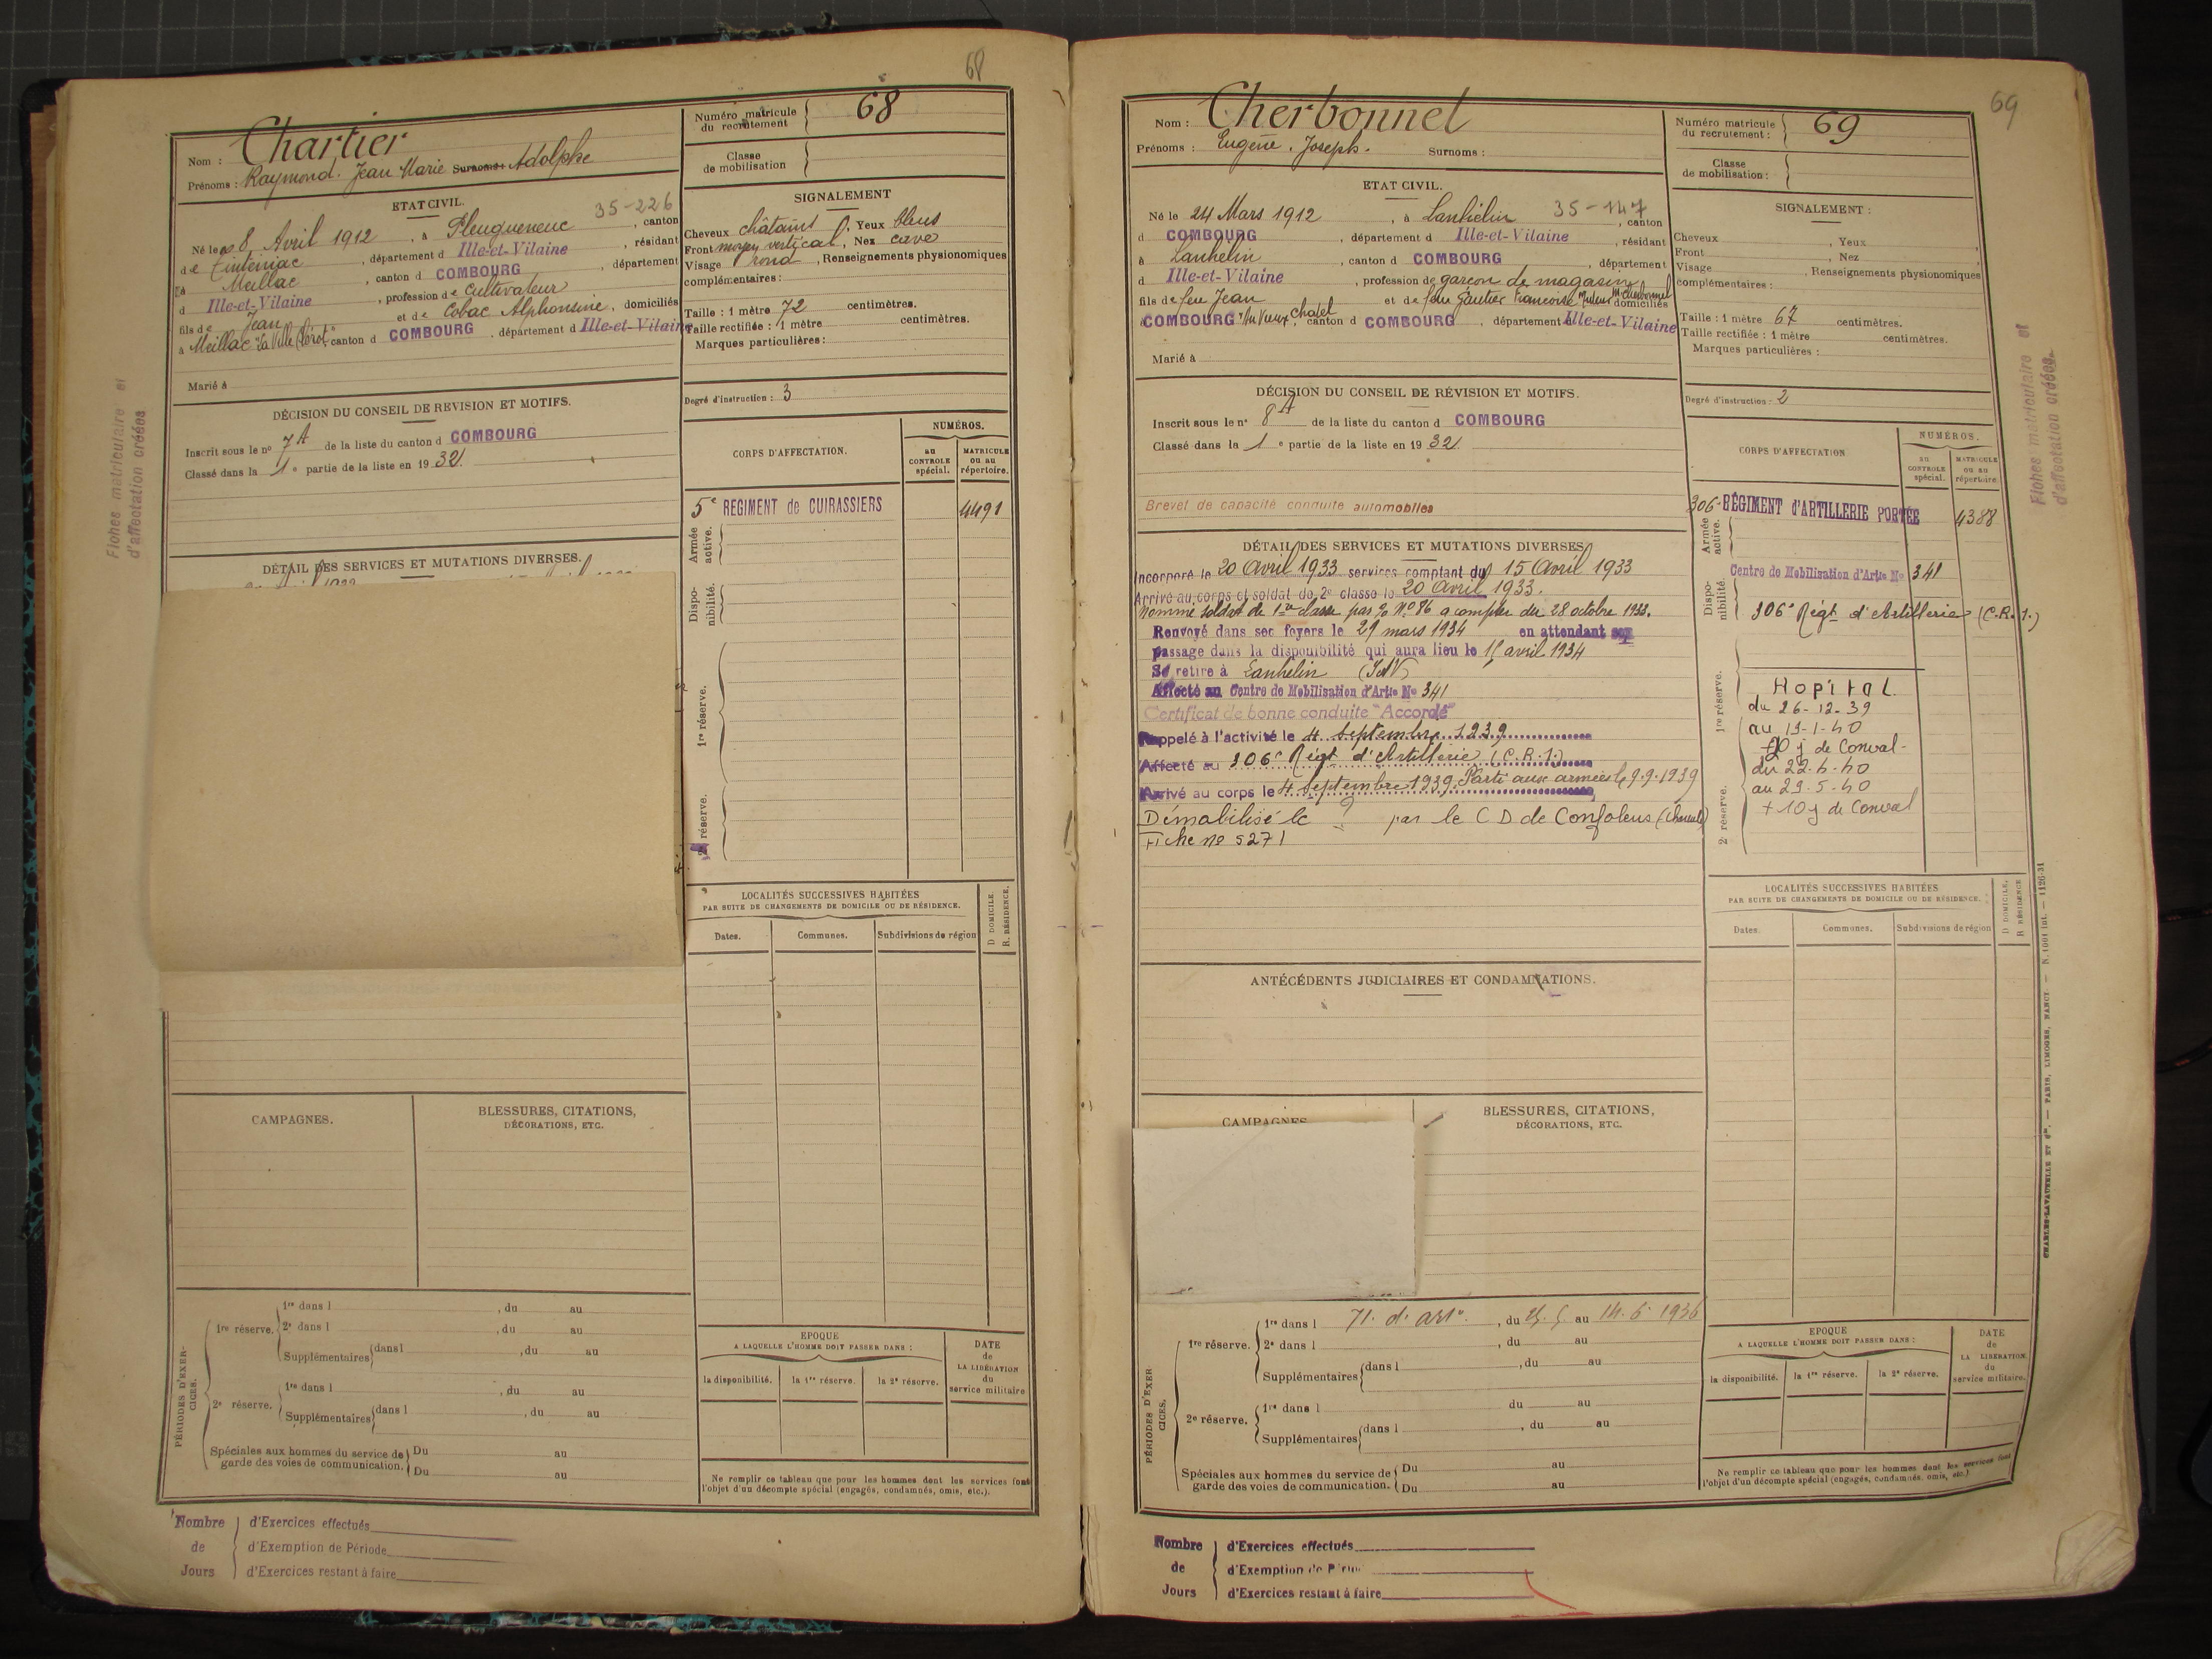 68
Nom : Chartier
Prénoms : Raymond. Jean Marie Surnoms : Adolphe
Numéro matricule du recrutement 68
Classe de mobilisation
ETAT CIVIL.
35-226
Né le 8 Avril 1912, à Pleugueneuc, canton
de Tinténiac, département d Ille-et-Vilaine, résidant
à Meillac, canton d COMBOURG, département
d Ille-et-Vilaine, profession de Cultivateur
fils de Jean et de Cobac Alphonsine, domiciliés
à Meillac "La Ville", canton d COMBOURG. département d Ille-et-Vilaine
Marié à
SIGNALEMENT
Cheveux châtains, Yeux bleus
Front moyen vertical, Nez cave
Visage rond, Renseignements physionomiques
complémentaires :
Taille : 1 mètre 72 centimètres.
Taille rectifiée : 1 mètre centimètres.
Marques particulières :
Degré d'instruction : 3
DÉCISION DU CONSEIL DE REVISION ET MOTIFS.
Inscrit sous le n° 7A de la liste du canton d COMBOURG
Classé dans la 1e partie de la liste en 1932.
Fiches matriculaire et
d'affectation créées
CORPS D'AFFECTATION.
NUMÉROS.
au CONTROLE spécial.
MATRICULE ou au répertoire.
5e REGIMENT de CUIRASSIERS 4491
Armée active.
Disponibilité.
1re réserve.
2e réserve.
DÉTAIL DES SERVICES ET MUTATIONS DIVERSES.
LOCALITÉS SUCCESSIVES HABITÉES
PAR SUITE DE CHANGEMENTS DE DOMICILE OU DE RÉSIDENCE.
Dates.
Communes.
Subdivisions de région
D DOMICILE.
R. RÉSIDENCE.
CAMPAGNES.
BLESSURES, CITATIONS,
DÉCORATIONS, ETC.
PÉRIODES D'EXERCICES.
1re réserve.
1re dans l , du au
2e dans l , du au
Supplémentaires dans l , du au
2e réserve.
1re dans l , du au
Supplémentaires dans l , du au
Spéciales aux hommes du service de
garde des voies de communication.
Du au
Du au
EPOQUE
A LAQUELLE L'HOMME DOIT PASSER DANS :
la disponibilité.
la 1re réserve.
la 2e réserve.
DATE de LA LIBÉRATION du service militaire
Ne remplir ce tableau que pour les hommes dont les services font
l'objet d'un décompte spécial (engagés, condamnés, omis, etc.).
Nombre de Jours
d'Exercices effectués
d'Exemption de Période
d'Exercices restant à faire
69
Nom : Cherbonnel
Prénoms : Eugène. Joseph. Surnoms :
Numéro matricule du recrutement : 69
Classe de mobilisation :
ETAT CIVIL.
35-147
Né le 24 Mars 1912, à Lanhélin, canton
d COMBOURG, département d Ille-et-Vilaine, résidant
à Lanhelin, canton d COMBOURG, département
d Ille-et-Vilaine, profession de garçon de magasin
fils de feu Jean et de feu Gautier Francoise domiciliés
COMBOURG "Au Vieux Chatel, canton d COMBOURG, département d Ille-et-Vilaine
Marié à
SIGNALEMENT :
Cheveux , Yeux
Front , Nez
Visage , Renseignements physionomiques
complémentaires :
Taille : 1 mètre 67 centimètres.
Taille rectifiée : 1 mètre centimètres.
Marques particulières :
Degré d'instruction : 2
DÉCISION DU CONSEIL DE RÉVISION ET MOTIFS.
Inscrit sous le n° 8A de la liste du canton d COMBOURG
Classé dans la 1e partie de la liste en 1932.
Brevet de capacité conduite automobiles
DÉTAIL DES SERVICES ET MUTATIONS DIVERSES
Incorporé le 20 Avril 1933 services comptant du 15 Avril 1933
Arrivé au corps et soldat de 2e classe le 20 Avril 1933.
Nommé soldat de 1re classe par N°86 a compter du 28 octobre 1933.
Renvoyé dans ses foyers le 29 mars 1934 en attendant son
passage dans la disponibilité qui aura lieu le 15 avril 1934
Se retire à Lanhélin (I&V)
Affecté au Centre de Mobilisation d'Artie No 341
Certificat de bonne conduite "Accordé"
Rappelé à l'activité le 4 Septembre 1939
Affecté au 306e Régt d'Artillerie (C.R.1.)
Arrivé au corps le 4 Septembre 1939. Parti aux armées le 9.9.1939
Démobilisé le ? par le C D de Confolens (Charente)
Fiche no 5271
Fiches matriculaire et
d'affectation créées.
CORPS D'AFFECTATION
NUMÉROS.
au CONTROLE spécial.
MATRICULE ou au répertoire.
306e RÉGIMENT d'ARTILLERIE PORTÉE 4388
Armée active.
Centre de Mobilisation d'Artie No 341
Disponibilité.
306e Régt d'Artillerie (C.R.1.)
1re réserve.
Hopital
du 26-12-39
au 19-1-40
+20 j de Conval-
du 22-4-40
au 29-5-40
+ 10 j de Conval
2e réserve.
LOCALITÉS SUCCESSIVES HABITÉES
PAR SUITE DE CHANGEMENTS DE DOMICILE OU DE RÉSIDENCE.
Dates.
Communes.
Subdivisions de région
D DOMICILE,
R RÉSIDENCE
ANTÉCÉDENTS JUDICIAIRES ET CONDAMNATIONS.
CAMPAGNES
BLESSURES, CITATIONS,
DÉCORATIONS, ETC.
PÉRIODES D'EXERCICES.
1re réserve.
1re dans l 71. d. artie., du 25.5 au 14.6.1936
2e dans l , du au
Supplémentaires dans l , du au
2e réserve.
1re dans l du au
Supplémentaires dans l , du au
Spéciales aux hommes du service de
garde des voies de communication.
Du au
Du au
EPOQUE
A LAQUELLE L'HOMME DOIT PASSER DANS :
la disponibilité.
la 1re réserve.
la 2e réserve.
DATE de LA LIBÉRATION du service militaire.
Ne remplir ce tableau que pour les hommes dont les services font
l'objet d'un décompte spécial (engagés, condamnés, omis, etc.)
CHARLES-LAVAUZELLE ET Cie. — PARIS, LIMOGES, NANCY — N. 1001 int. — 1126-31
Nombre de Jours
d'Exercices effectués
d'Exemption de Période
d'Exercices restant à faire